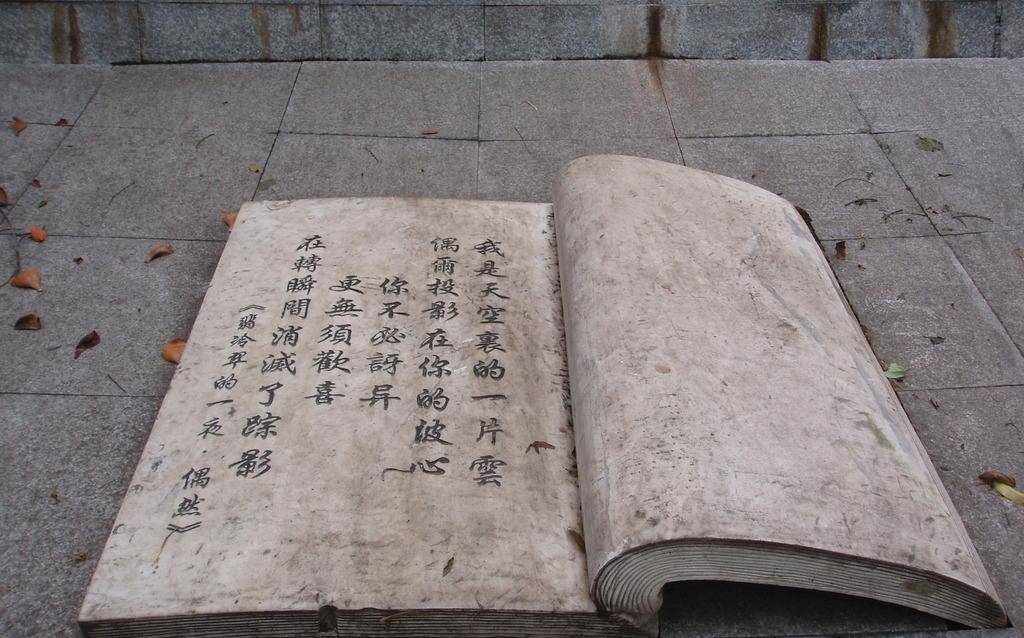 我是天空裏的一片雲
偶爾投影在你的波心
你不必訝异
更無須歡喜
在轉瞬間消滅了踪影
《翡冷翠的一夜·偶然》